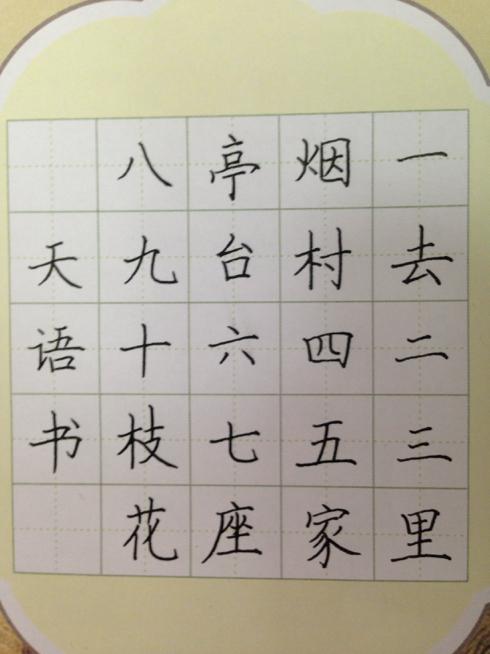 一去二三里
烟村四五家
亭台六七座
八九十枝花
天语书